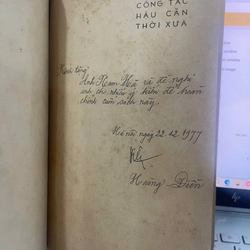 CÔNG TÁC
HẬU CẦN
THỜI XƯA
Kính tặng
Anh Nam Hà và đề nghị
anh cho nhiều ý kiến để hoàn
chỉnh cuốn sách này.
Hà nội ngày 22-12-1977
Hoàng Điền
hp